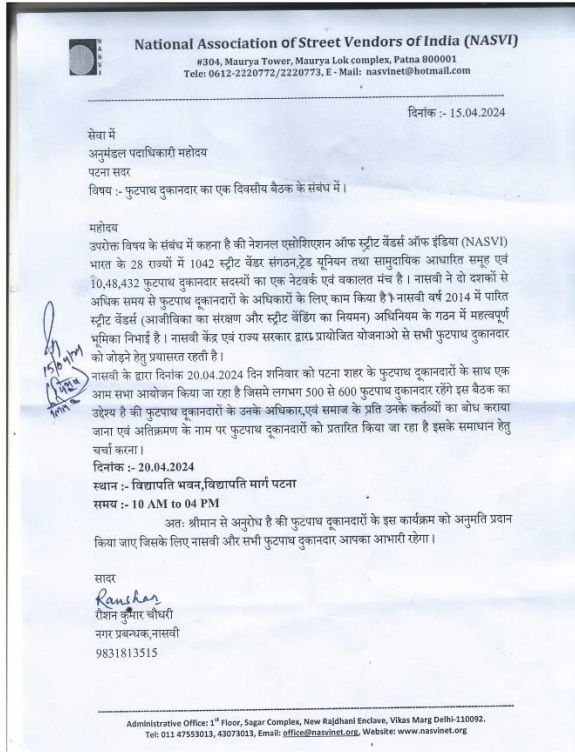 NASVI
National Association of Street Vendors of India (NASVI)
#304, Maurya Tower, Maurya Lok complex, Patna 800001
Tele: 0612-2220772/2220773, E - Mail: nasvinet@hotmail.com
दिनांक :- 15.04.2024
सेवा में
अनुमंडल पदाधिकारी महोदय
पटना सदर
विषय :- फुटपाथ दुकानदार का एक दिवसीय बैठक के संबंध में।
महोदय
उपरोक्त विषय के संबंध में कहना है की नेशनल एसोशिएशन ऑफ स्ट्रीट वेंडर्स ऑफ इंडिया (NASVI)
भारत के 28 राज्यों में 1042 स्ट्रीट वेंडर संगठन,ट्रेड यूनियन तथा सामुदायिक आधारित समूह एवं
10,48,432 फुटपाथ दुकानदार सदस्यों का एक नेटवर्क एवं वकालत मंच है। नासवी ने दो दशकों से
अधिक समय से फुटपाथ दुकानदारों के अधिकारों के लिए काम किया है। नासवी वर्ष 2014 में पारित
स्ट्रीट वेंडर्स (आजीविका का संरक्षण और स्ट्रीट वेंडिंग का नियमन) अधिनियम के गठन में महत्वपूर्ण
भूमिका निभाई है। नासवी केंद्र एवं राज्य सरकार द्वारा प्रायोजित योजनाओ से सभी फुटपाथ दुकानदार
को जोड़ने हेतु प्रयासरत रहती है।
नासवी के द्वारा दिनांक 20.04.2024 दिन शनिवार को पटना शहर के फुटपाथ दुकानदारों के साथ एक
आम सभा आयोजन किया जा रहा है जिसमे लगभग 500 से 600 फुटपाथ दुकानदार रहेंगे इस बैठक का
उद्देश्य है की फुटपाथ दुकानदारों के उनके अधिकार,एवं समाज के प्रति उनके कर्तव्यों का बोध कराया
जाना एवं अतिक्रमण के नाम पर फुटपाथ दुकानदारों को प्रतारित किया जा रहा है इसके समाधान हेतु
चर्चा करना।
दिनांक :- 20.04.2024
स्थान :- विद्यापति भवन,विद्यापति मार्ग पटना
समय :- 10 AM to 04 PM
अतः श्रीमान से अनुरोध है की फुटपाथ दुकानदारों के इस कार्यक्रम को अनुमति प्रदान
किया जाए जिसके लिए नासवी और सभी फुटपाथ दुकानदार आपका आभारी रहेगा।
सादर
Raushan
रौशन कुमार चौधरी
नगर प्रबन्धक,नासवी
9831813515
Administrative Office: 1st Floor, Sagar Complex, New Rajdhani Enclave, Vikas Marg Delhi-110092.
Tel: 011 47553013, 43073013, Email: office@nasvinet.org, Website: www.nasvinet.org